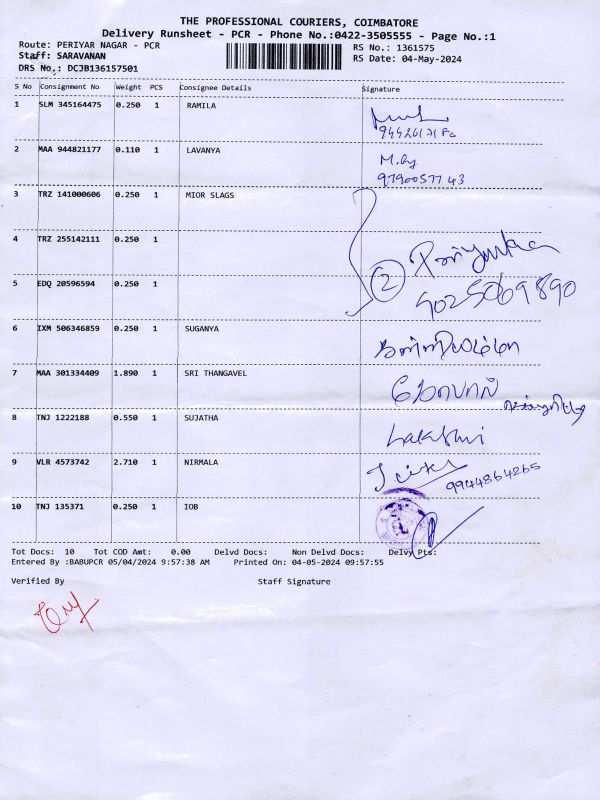 THE PROFESSIONAL COURIERS, COIMBATORE
Delivery Runsheet - PCR - Phone No.:0422-3505555 - Page No.:1
Route: PERIYAR NAGAR - PCR
RS No.: 1361575
Staff: SARAVANAN
RS Date: 04-May-2024
DRS No.: DCJB136157501
S No Consignment No Weight PCS Consignee Details Signature
1 SLM 345164475 0.250 1 RAMILA
2 MAA 944821177 0.110 1 LAVANYA
9790057743
3 TRZ 141000606 0.250 1 MIOR SLAGS
4 TRZ 255142111 0.250 1
2 Priyanka
5 EDQ 20596594 0.250 1
9025069890
6 IXM 506346859 0.250 1 SUGANYA
7 MAA 301334409 1.890 1 SRI THANGAVEL
8 TNJ 1222188 0.550 1 SUJATHA
Lakshmi
9 VLR 4573742 2.710 1 NIRMALA
9944864265
10 TNJ 135371 0.250 1 IOB
Tot Docs: 10 Tot COD Amt: 0.00 Delvd Docs: Non Delvd Docs: Delvy Pts:
Entered By :BABUPCR 05/04/2024 9:57:38 AM Printed On: 04-05-2024 09:57:55
Verified By Staff Signature